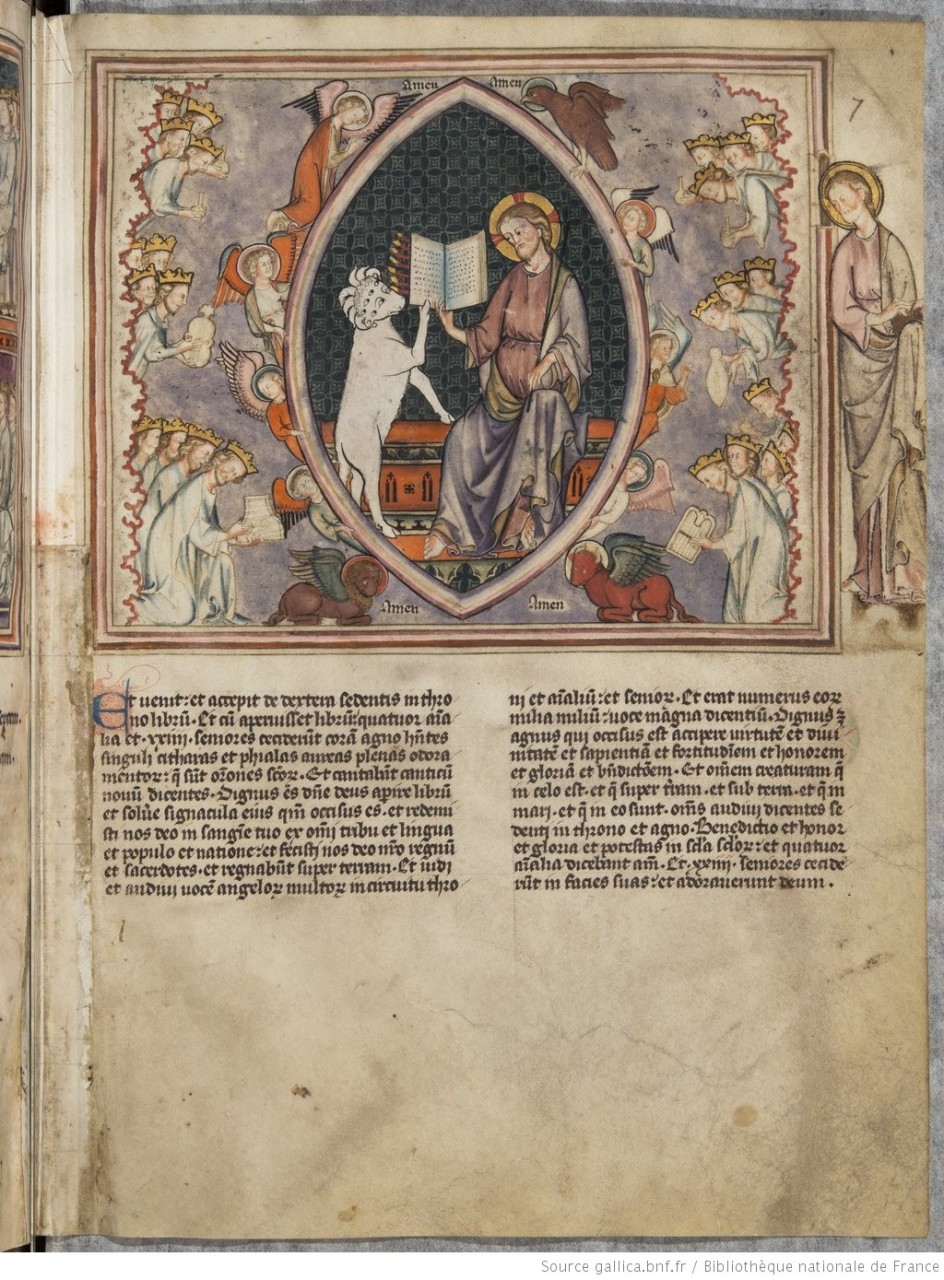 Amen
Amen
7
Amen
Amen
Et uenit: et accepit de dextera sedentis in thro
no libru᷑. Et cū aperuisset librū: quatuor aīa
lia et .xxiiii. seniores ceciderūt corā agno hn̄tes
singuli citharas et phialas aureas plenas odora
mentoꝝ: q̄ sūt or̄ones sc̄oꝝ. Et cantabāt canticū
nouū dicentes. Dignus es dn̄e deus apire librū
et solue signacula eius qm̄ occisus es. et redemi
sti nos deo in sangīe tuo ex om̄i tribu et lingua
et populo et natione: et fecisti nos deo nr̄o regnū
et sacerdotes. et regnabūt super terram. Et uidi
et audiui uocē angeloꝝ multoꝝ in circuitu thro
ni et aīaliū: et senioꝝ. Et erat numerus eoꝝ
milia miliū: uoce magna dicentiū. Dignus ē
agnus qui occisus est accipere uirtutē et diui
nitatē et sapientiā et fortitudīem et honorem
et gloriā et bn̄dictōem. Et om̄em creaturam q̄
in celo est. et q̄ super tr̄am. et sub terra. et q̄ in
mari. et q̄ in eo sunt. om̄s audiui dicentes se
denti in throno et agno. Benedictio et honor
et gloria et potestas in scl̄a scl̄oꝝ: et quatuor
aīalia dicebant am̄. Et .xxiiii. seniores cecide
rūt in facies suas: et adorauerunt deum.
Source gallica.bnf.fr / Bibliothèque nationale de France